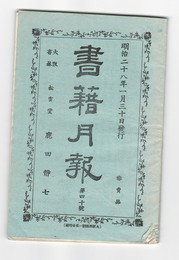 明治二十八年一月三十日發行
非賣品
書籍月報
第四十號
大阪
書林
松雲堂
鹿田靜七